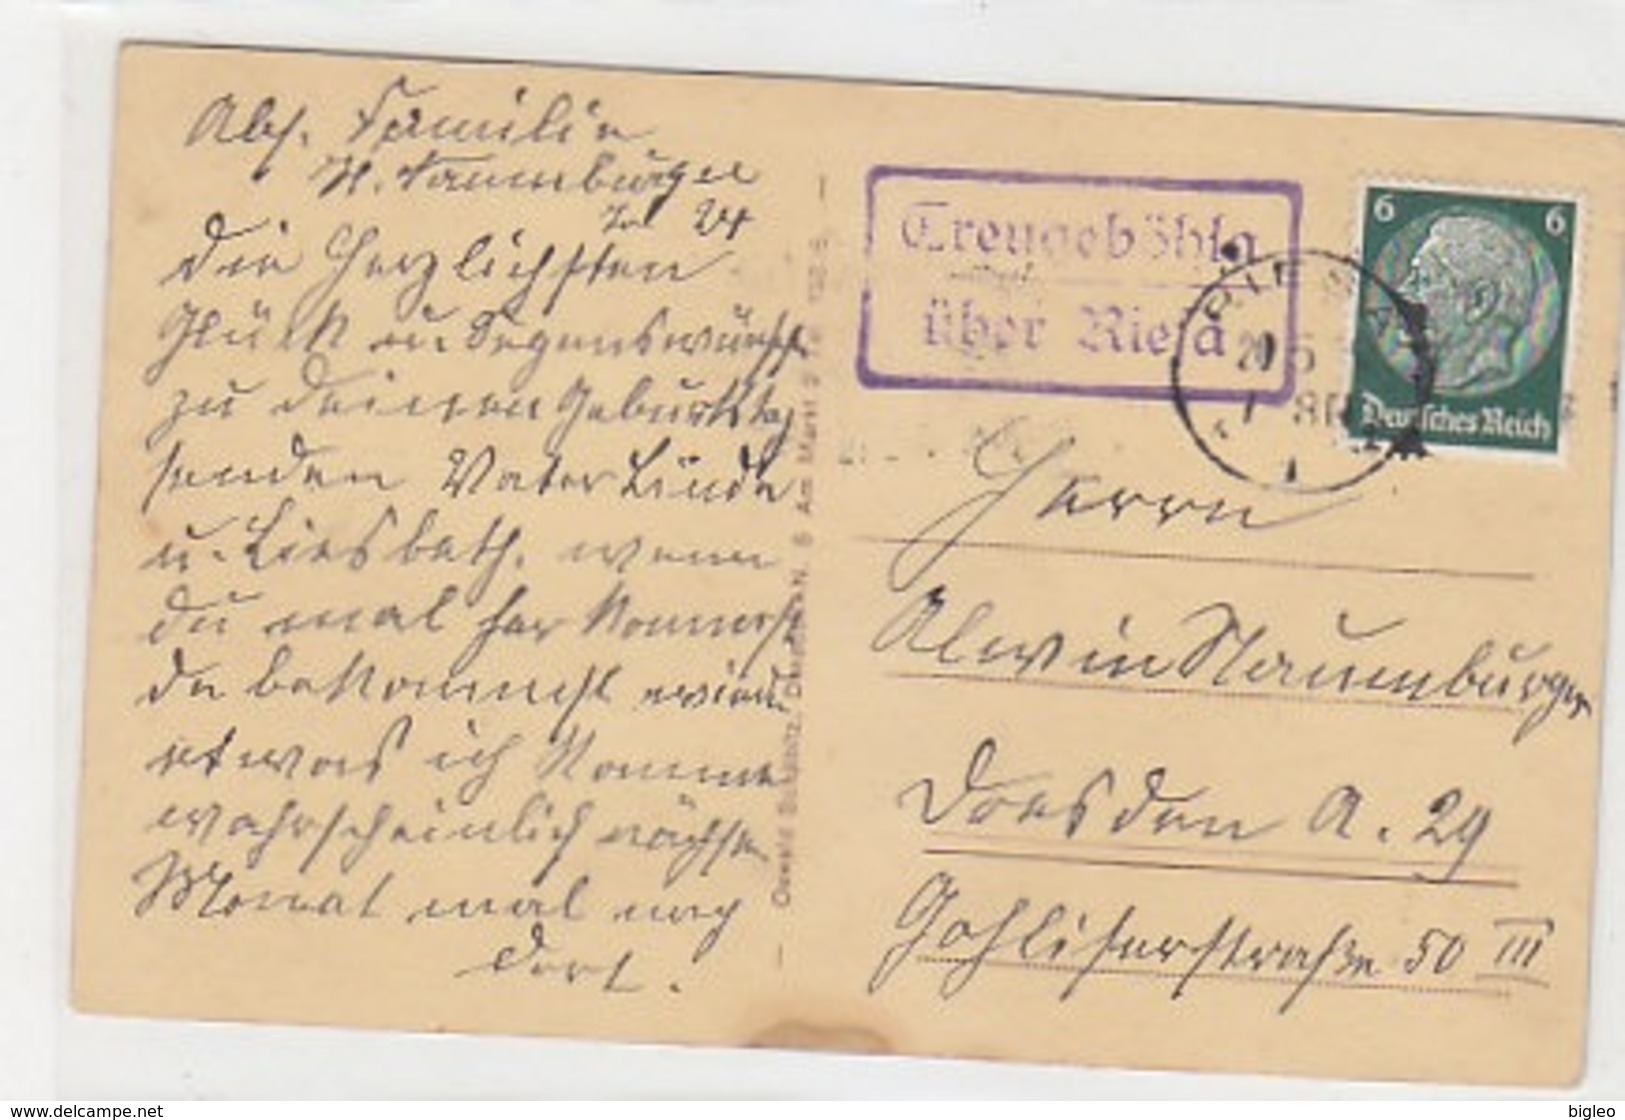 Abs. Familie
H. Naumburger
Die Herzlichsten
Glück u. Segenswünsche
zu Deinen Geburtstag
senden Vater Linda
u. Liesbeth. wenn
Du mal her kommst
Du bekommst wieder
etwas ich komme
wahrscheinlich nächsten
Monat mal nach
Dort.
Am Markt 2
Treugeböhla
über Riesa
RIESA
20 5
6 6
Deutsches Reich
Herrn
Alwin Naumburger
Dresden A. 29
Gohliserstraße 50 III
www.delcampe.net
bigleo